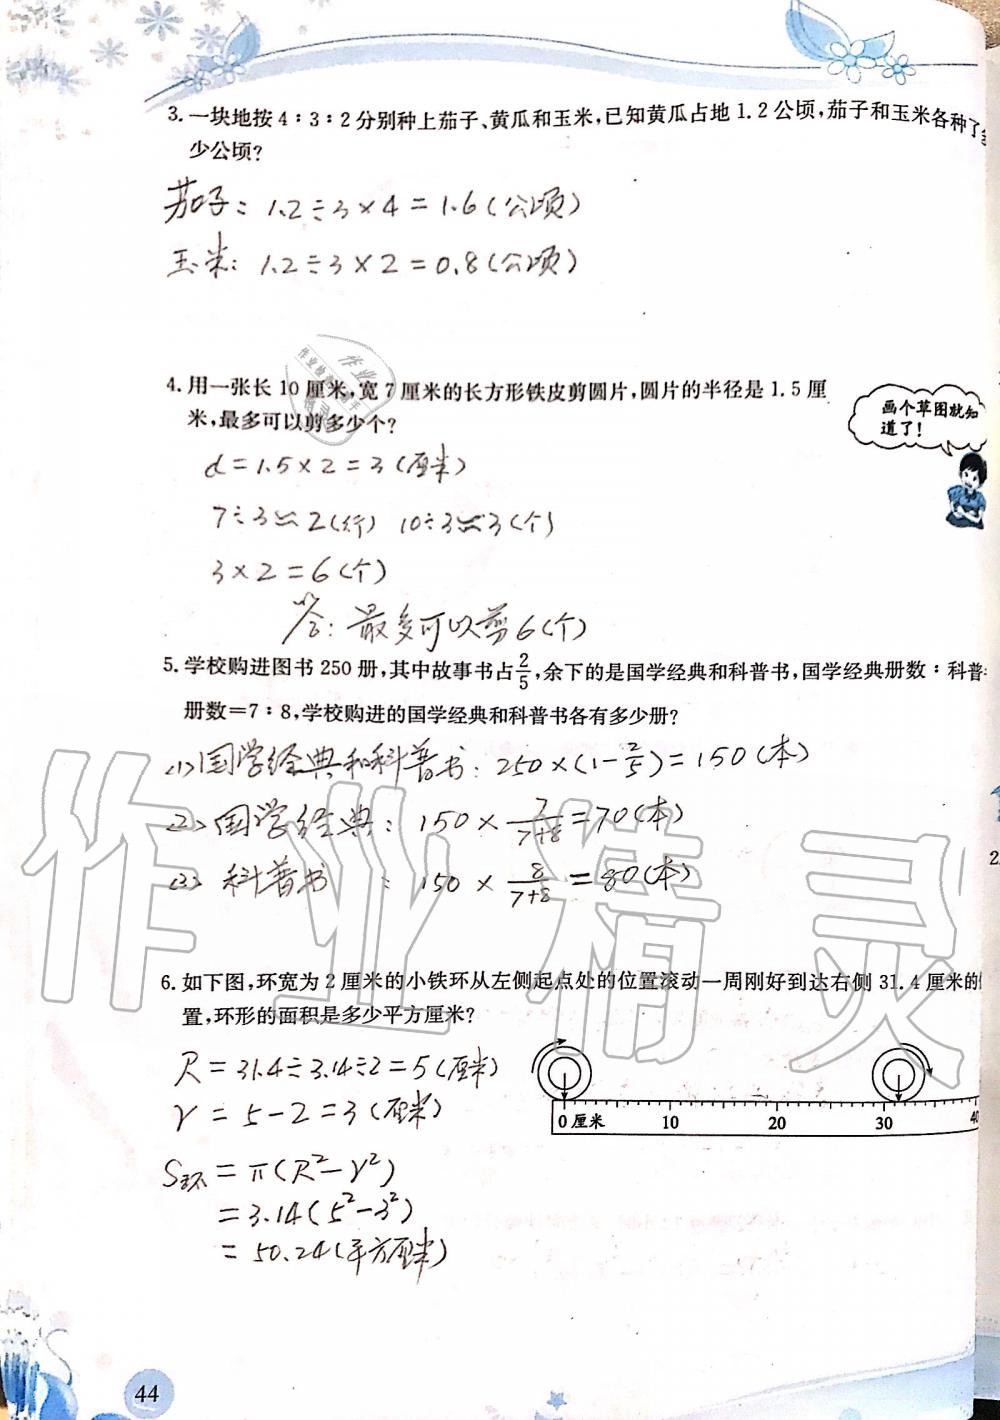 3. 一块地按4∶3∶2分别种上茄子、黄瓜和玉米,已知黄瓜占地1.2公顷,茄子和玉米各种了
少公顷?
茄子: 1.2÷3×4=1.6(公顷)
玉米: 1.2÷3×2=0.8(公顷)
4. 用一张长10厘米,宽7厘米的长方形铁皮剪圆片,圆片的半径是1.5厘
米,最多可以剪多少个?
画个草图就知
道了!
d=1.5×2=3(厘米)
7÷3≈2(行) 10÷3≈3(个)
3×2=6(个)
答: 最多可以剪6(个)
5. 学校购进图书250册,其中故事书占2/5,余下的是国学经典和科普书,国学经典册数∶科普
册数=7∶8,学校购进的国学经典和科普书各有多少册?
(1)国学经典和科普书: 250×(1-2/5)=150(本)
(2)国学经典: 150×7/(7+8)=70(本)
(3)科普书: 150×8/(7+8)=80(本)
作业精灵
6. 如下图,环宽为2厘米的小铁环从左侧起点处的位置滚动一周刚好到达右侧31.4厘米的
置,环形的面积是多少平方厘米?
R=31.4÷3.14÷2=5(厘米)
r=5-2=3(厘米)
0厘米 10 20 30 40
S环=π(R²-r²)
=3.14(5²-3²)
=50.24(平方厘米)
44